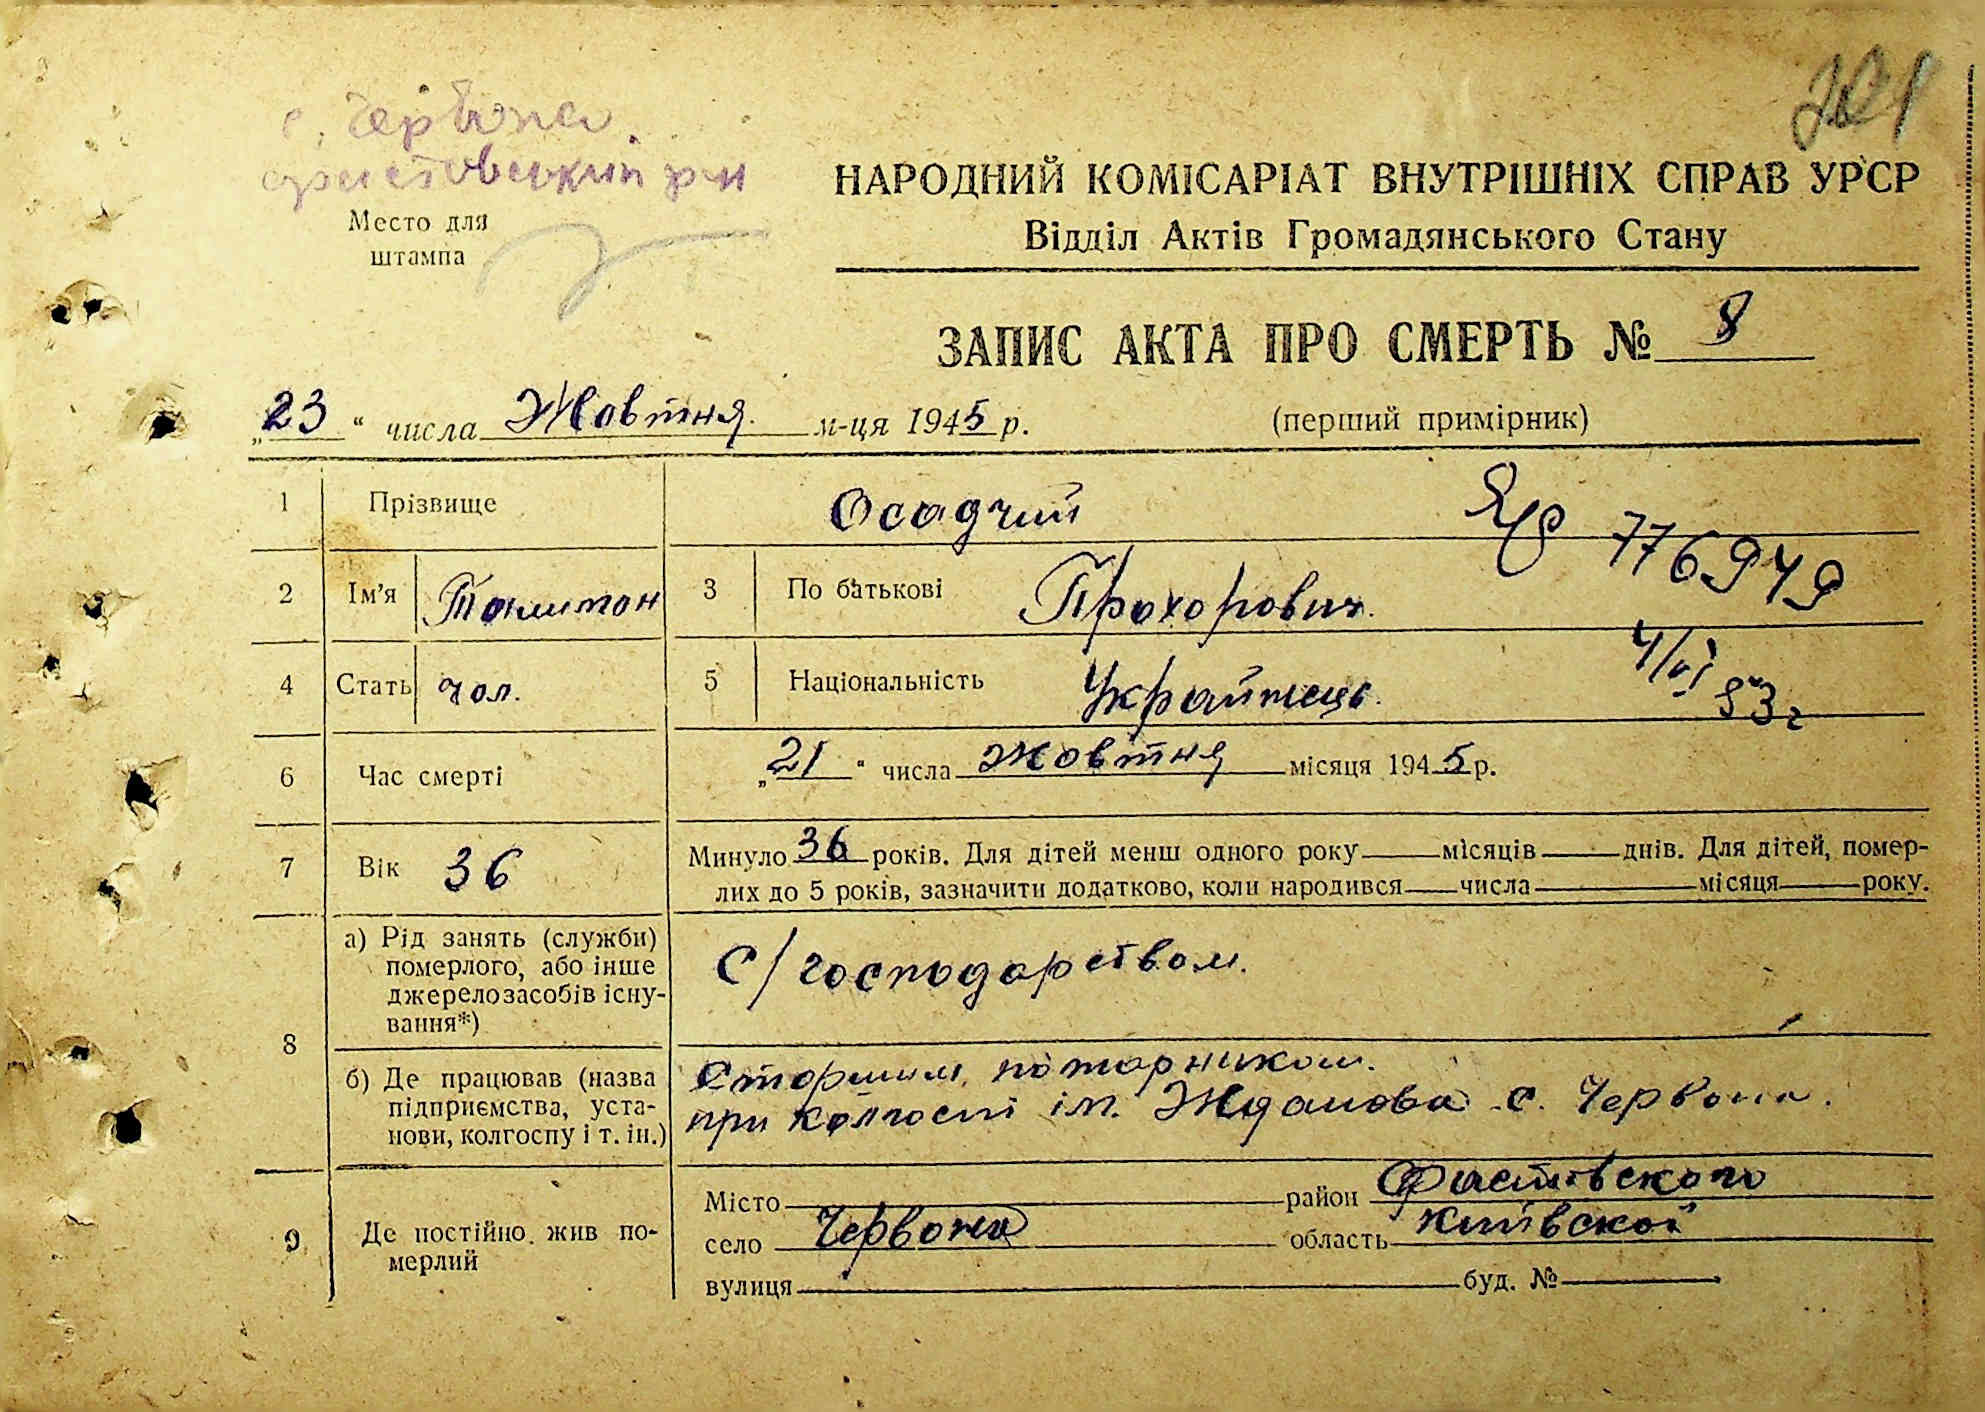 с. Червона
Фастовський р-н
Место для
штампа
НАРОДНИЙ КОМІСАРІАТ ВНУТРІШНІХ СПРАВ УРСР
Відділ Актів Громадянського Стану
ЗАПИС АКТА ПРО СМЕРТЬ № 8
„23“ числа Жовтня м-ця 1945 р.
(перший примірник)
1 Прізвище Осадчий
2 Ім’я 3 По батькові Прохорович.
776949
4 Стать чол. 5 Національність Українець.
4/VI 83 г
6 Час смерті „21“ числа жовтня місяця 1945 р.
7 Вік 36 Минуло 36 років. Для дітей менш одного року місяців днів. Для дітей, помер-
лих до 5 років, зазначити додатково, коли народився числа місяця року.
8 а) Рід занять (служби)
померлого, або інше
джерело засобів існу-
вання*)
С/господарством.
б) Де працював (назва
підприємства, уста-
нови, колгоспу і т. ін.)
Старшим пожарником.
при колгоспі ім. Жданова с. Червона.
9 Де постійно жив по-
мерлий
Місто район Фастівського
село Червона область Київской
вулиця буд. №